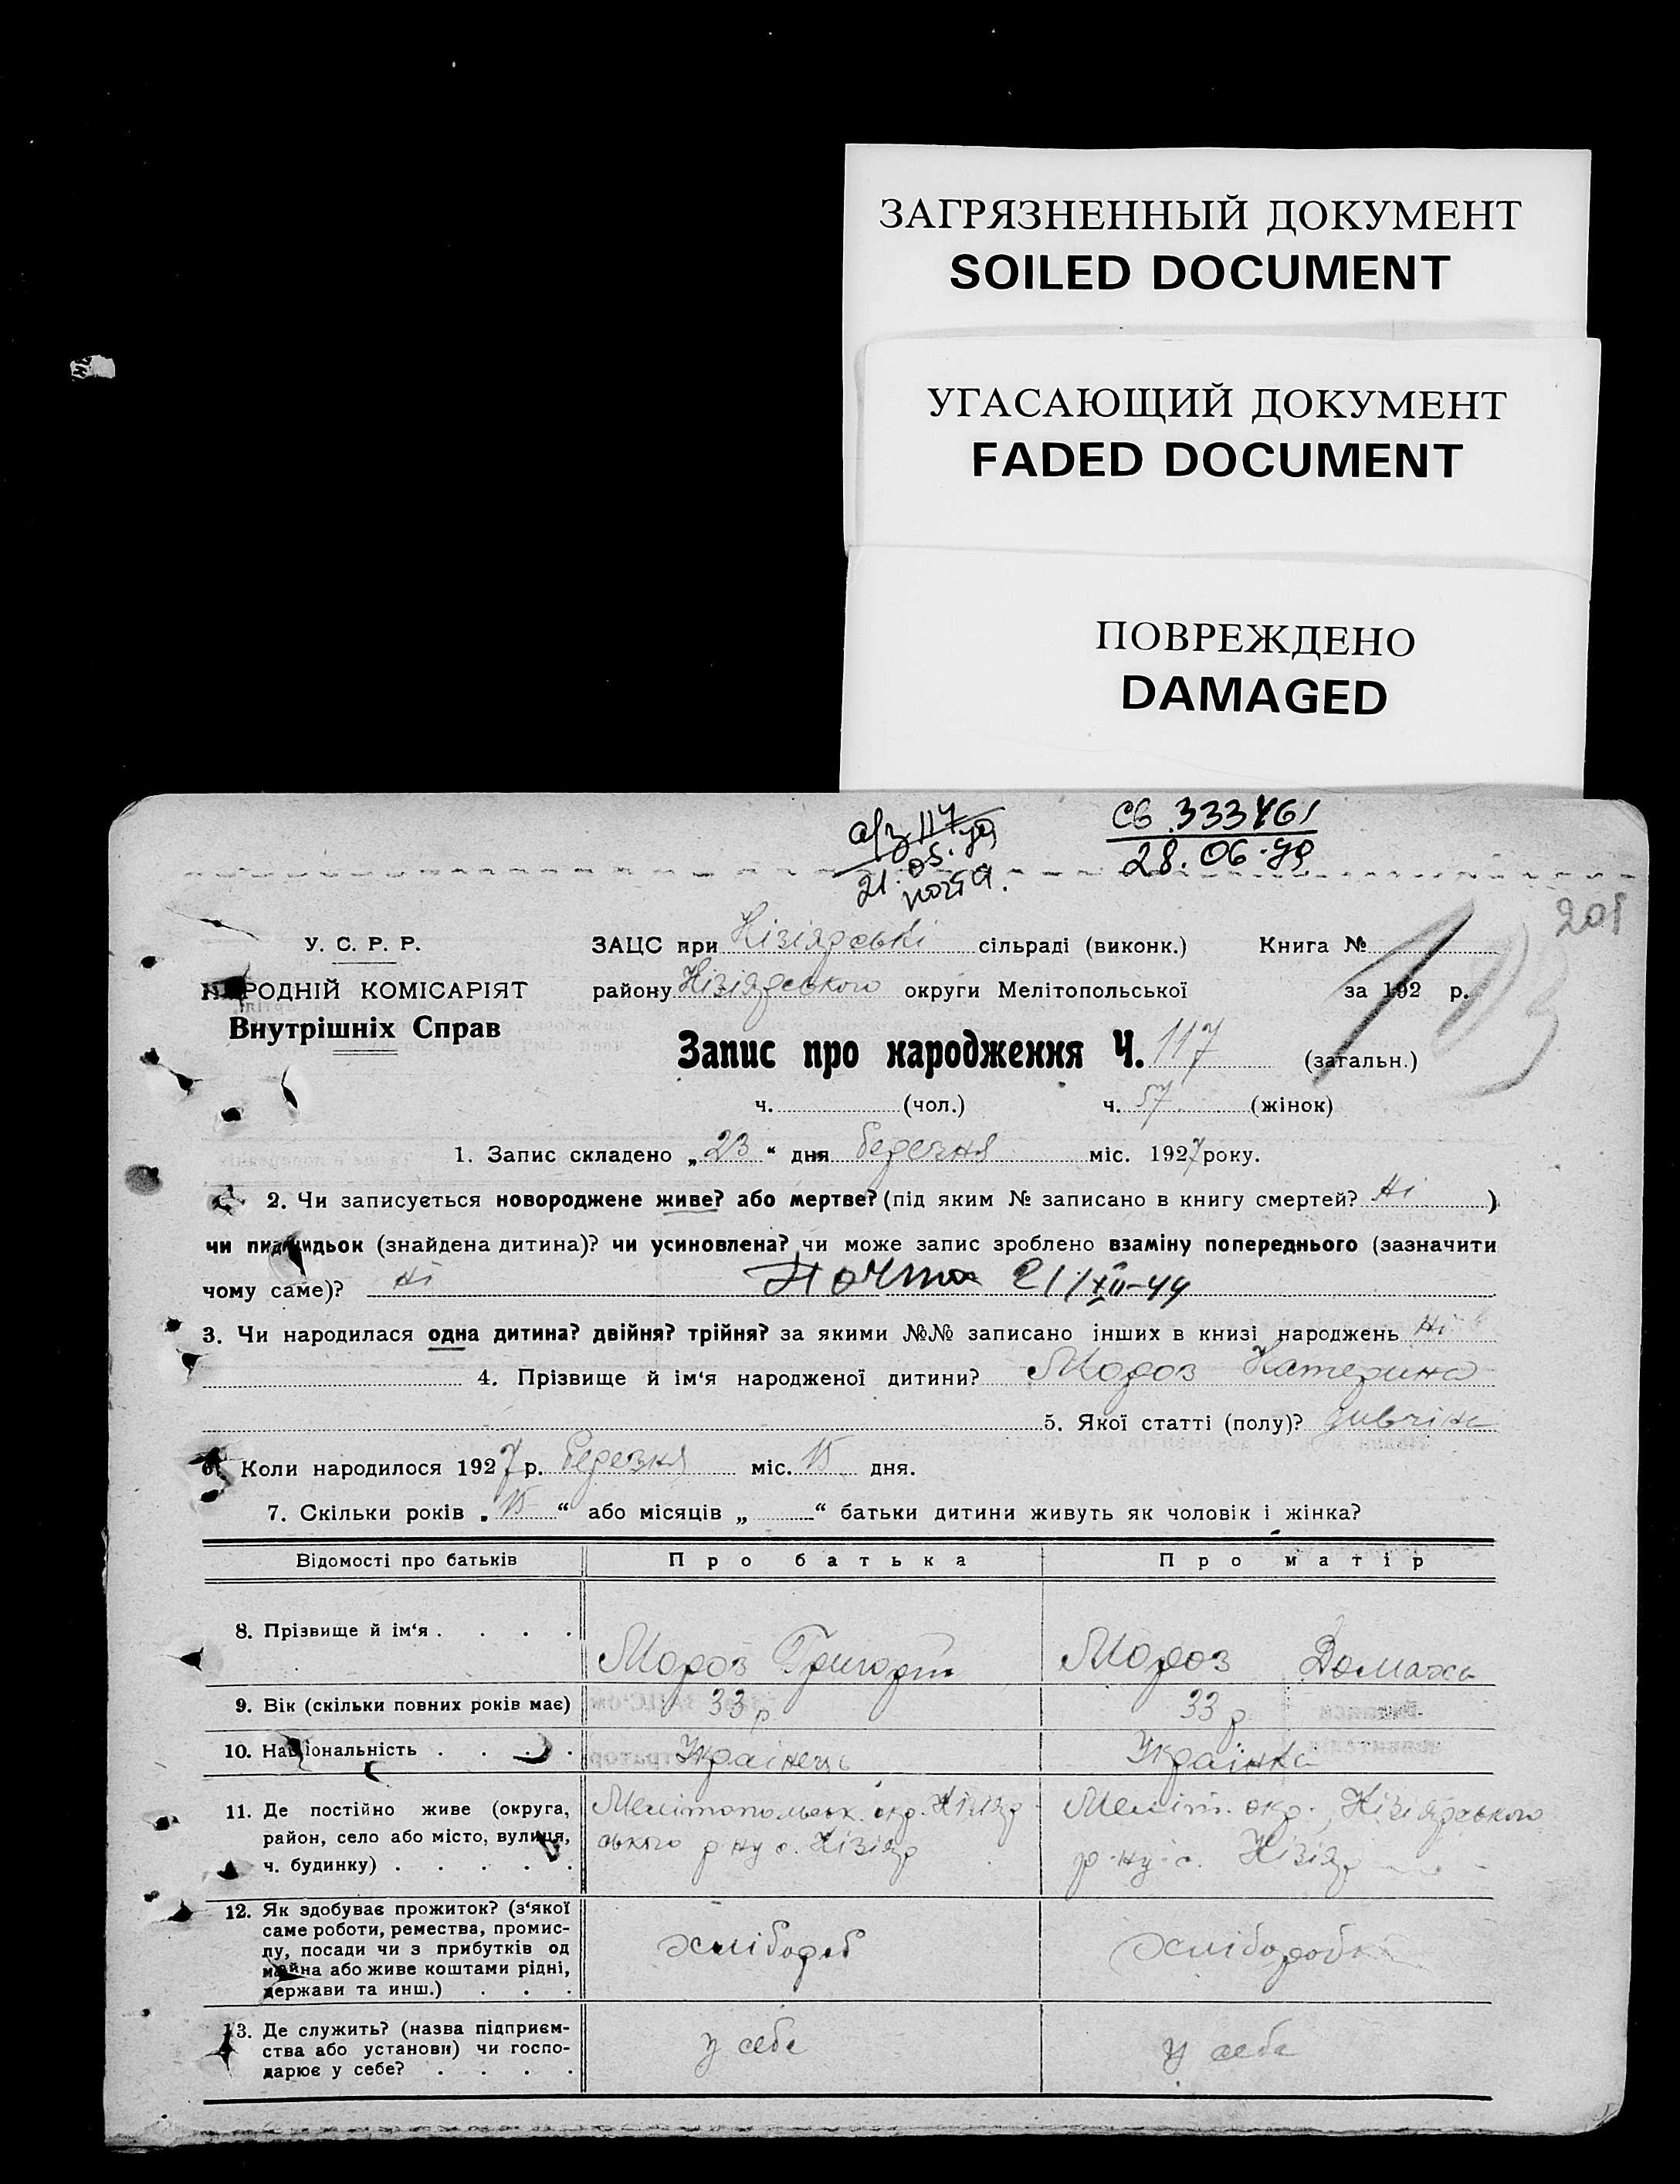 ЗАГРЯЗНЕННЫЙ ДОКУМЕНТ
SOILED DOCUMENT
УГАСАЮЩИЙ ДОКУМЕНТ
FADED DOCUMENT
ПОВРЕЖДЕНО
DAMAGED
а/з 117
21.05.79
св 333461
28.06.79
201
У. С. Р. Р.
ЗАЦС при Кізіярські сільраді (виконк.) Книга №
НАРОДНІЙ КОМІСАРІЯТ
району Кізіярського округи Мелітопольської за 192 р.
Внутрішніх Справ
Запис про народження Ч. 117 (загальн.)
ч. (чол.) ч. 57 (жінок)
1. Запис складено „23“ дня березня міс. 1927 року.
2. Чи записується новороджене живе? або мертве? (під яким № записано в книгу смертей? Ні)
чи підкидьок (знайдена дитина)? чи усиновлена? чи може запис зроблено взаміну попереднього (зазначити
чому саме)? Ні Почта 21/XII-44
3. Чи народилася одна дитина? двійня? трійня? за якими №№ записано інших в книзі народжень Ні
4. Прізвище й ім‘я народженої дитини? Мороз Катерина
5. Якої статті (полу)? дівоча
6. Коли народилося 1927 р. березня міс. 15 дня.
7. Скільки років „15“ або місяців „ “ батьки дитини живуть як чоловік і жінка?
Відомості про батьків Про батька Про матір
8. Прізвище й ім‘я . . . . Мороз Григорій Мороз Домаха
9. Вік (скільки повних років має) 33 р 33 р
10. Національність . . . . Українець Українка
11. Де постійно живе (округа,
район, село або місто, вулиця,
ч. будинку) . . . . .
Мелітопольськ. окр. Кізіяр
ського р-ну с. Кізіяр
Меліт. окр. Кізіярського
р-ну с. Кізіяр
12. Як здобуває прожиток? (з‘якої
саме роботи, ремества, промис-
лу, посади чи з прибутків од
майна або живе коштами рідні,
держави та инш.) . . .
хлібороб
хліборобка
13. Де служить? (назва підприєм-
ства або установи) чи госпо-
дарює у себе? . . . .
у себе
у себе